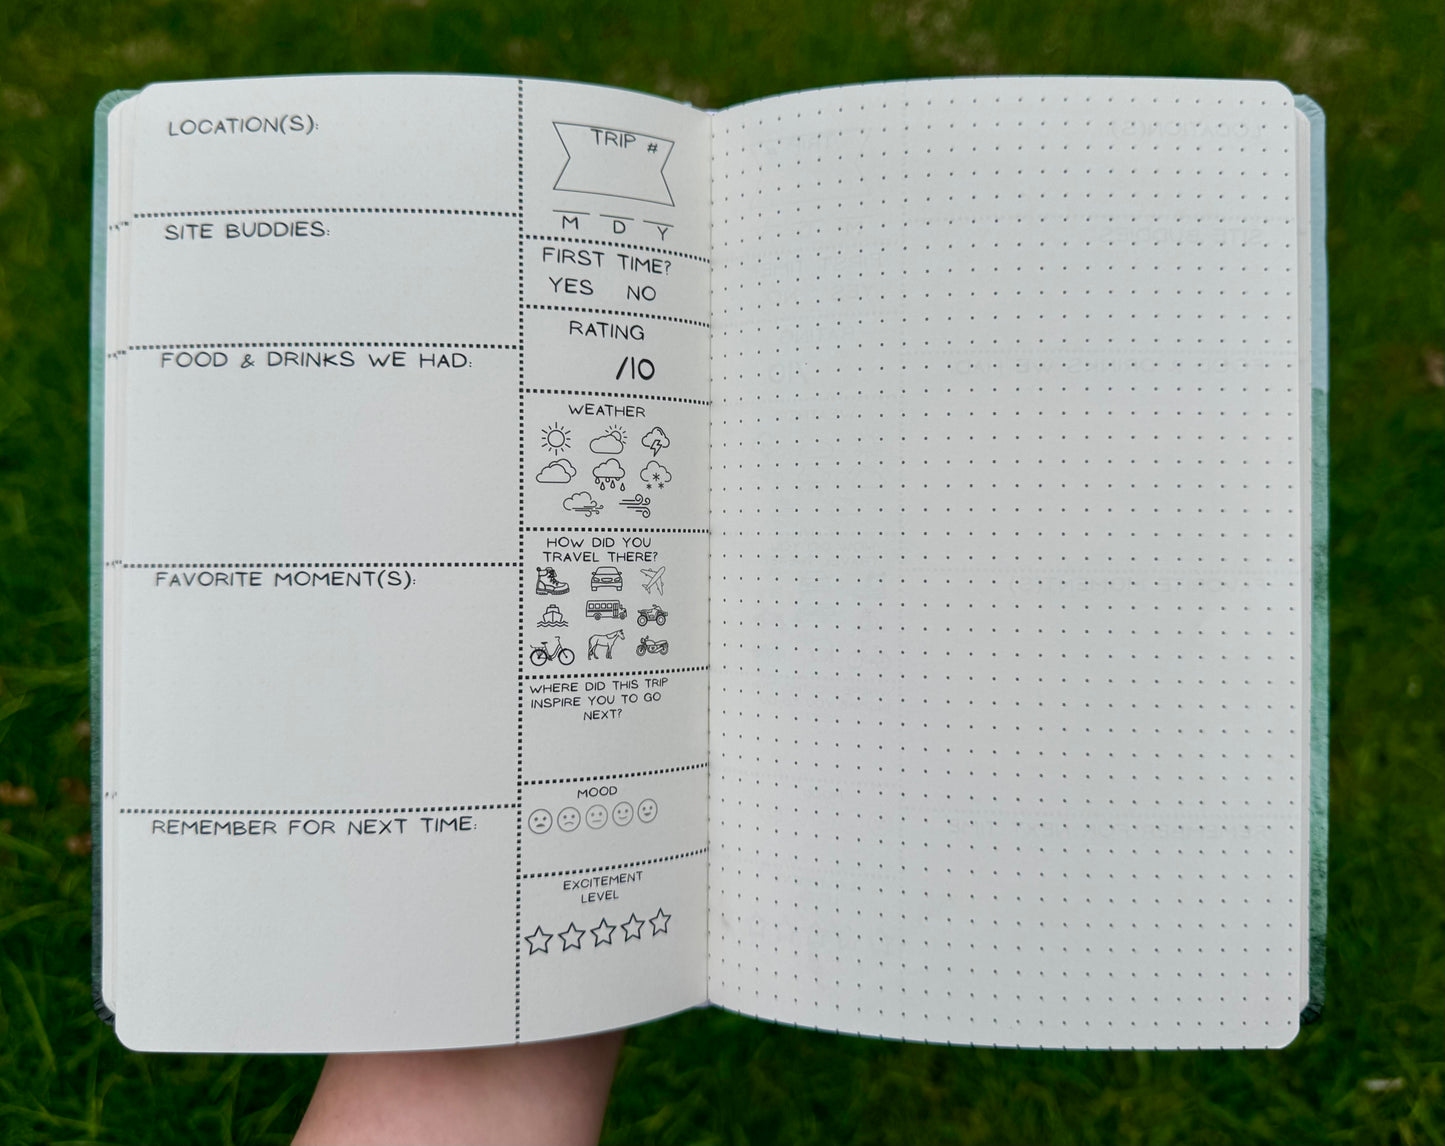 LOCATION(S):
SITE BUDDIES:
FOOD & DRINKS WE HAD:
FAVORITE MOMENT(S):
REMEMBER FOR NEXT TIME:
TRIP #
M D Y
FIRST TIME?
YES NO
RATING
/10
WEATHER
HOW DID YOU
TRAVEL THERE?
WHERE DID THIS TRIP
INSPIRE YOU TO GO
NEXT?
MOOD
EXCITEMENT
LEVEL